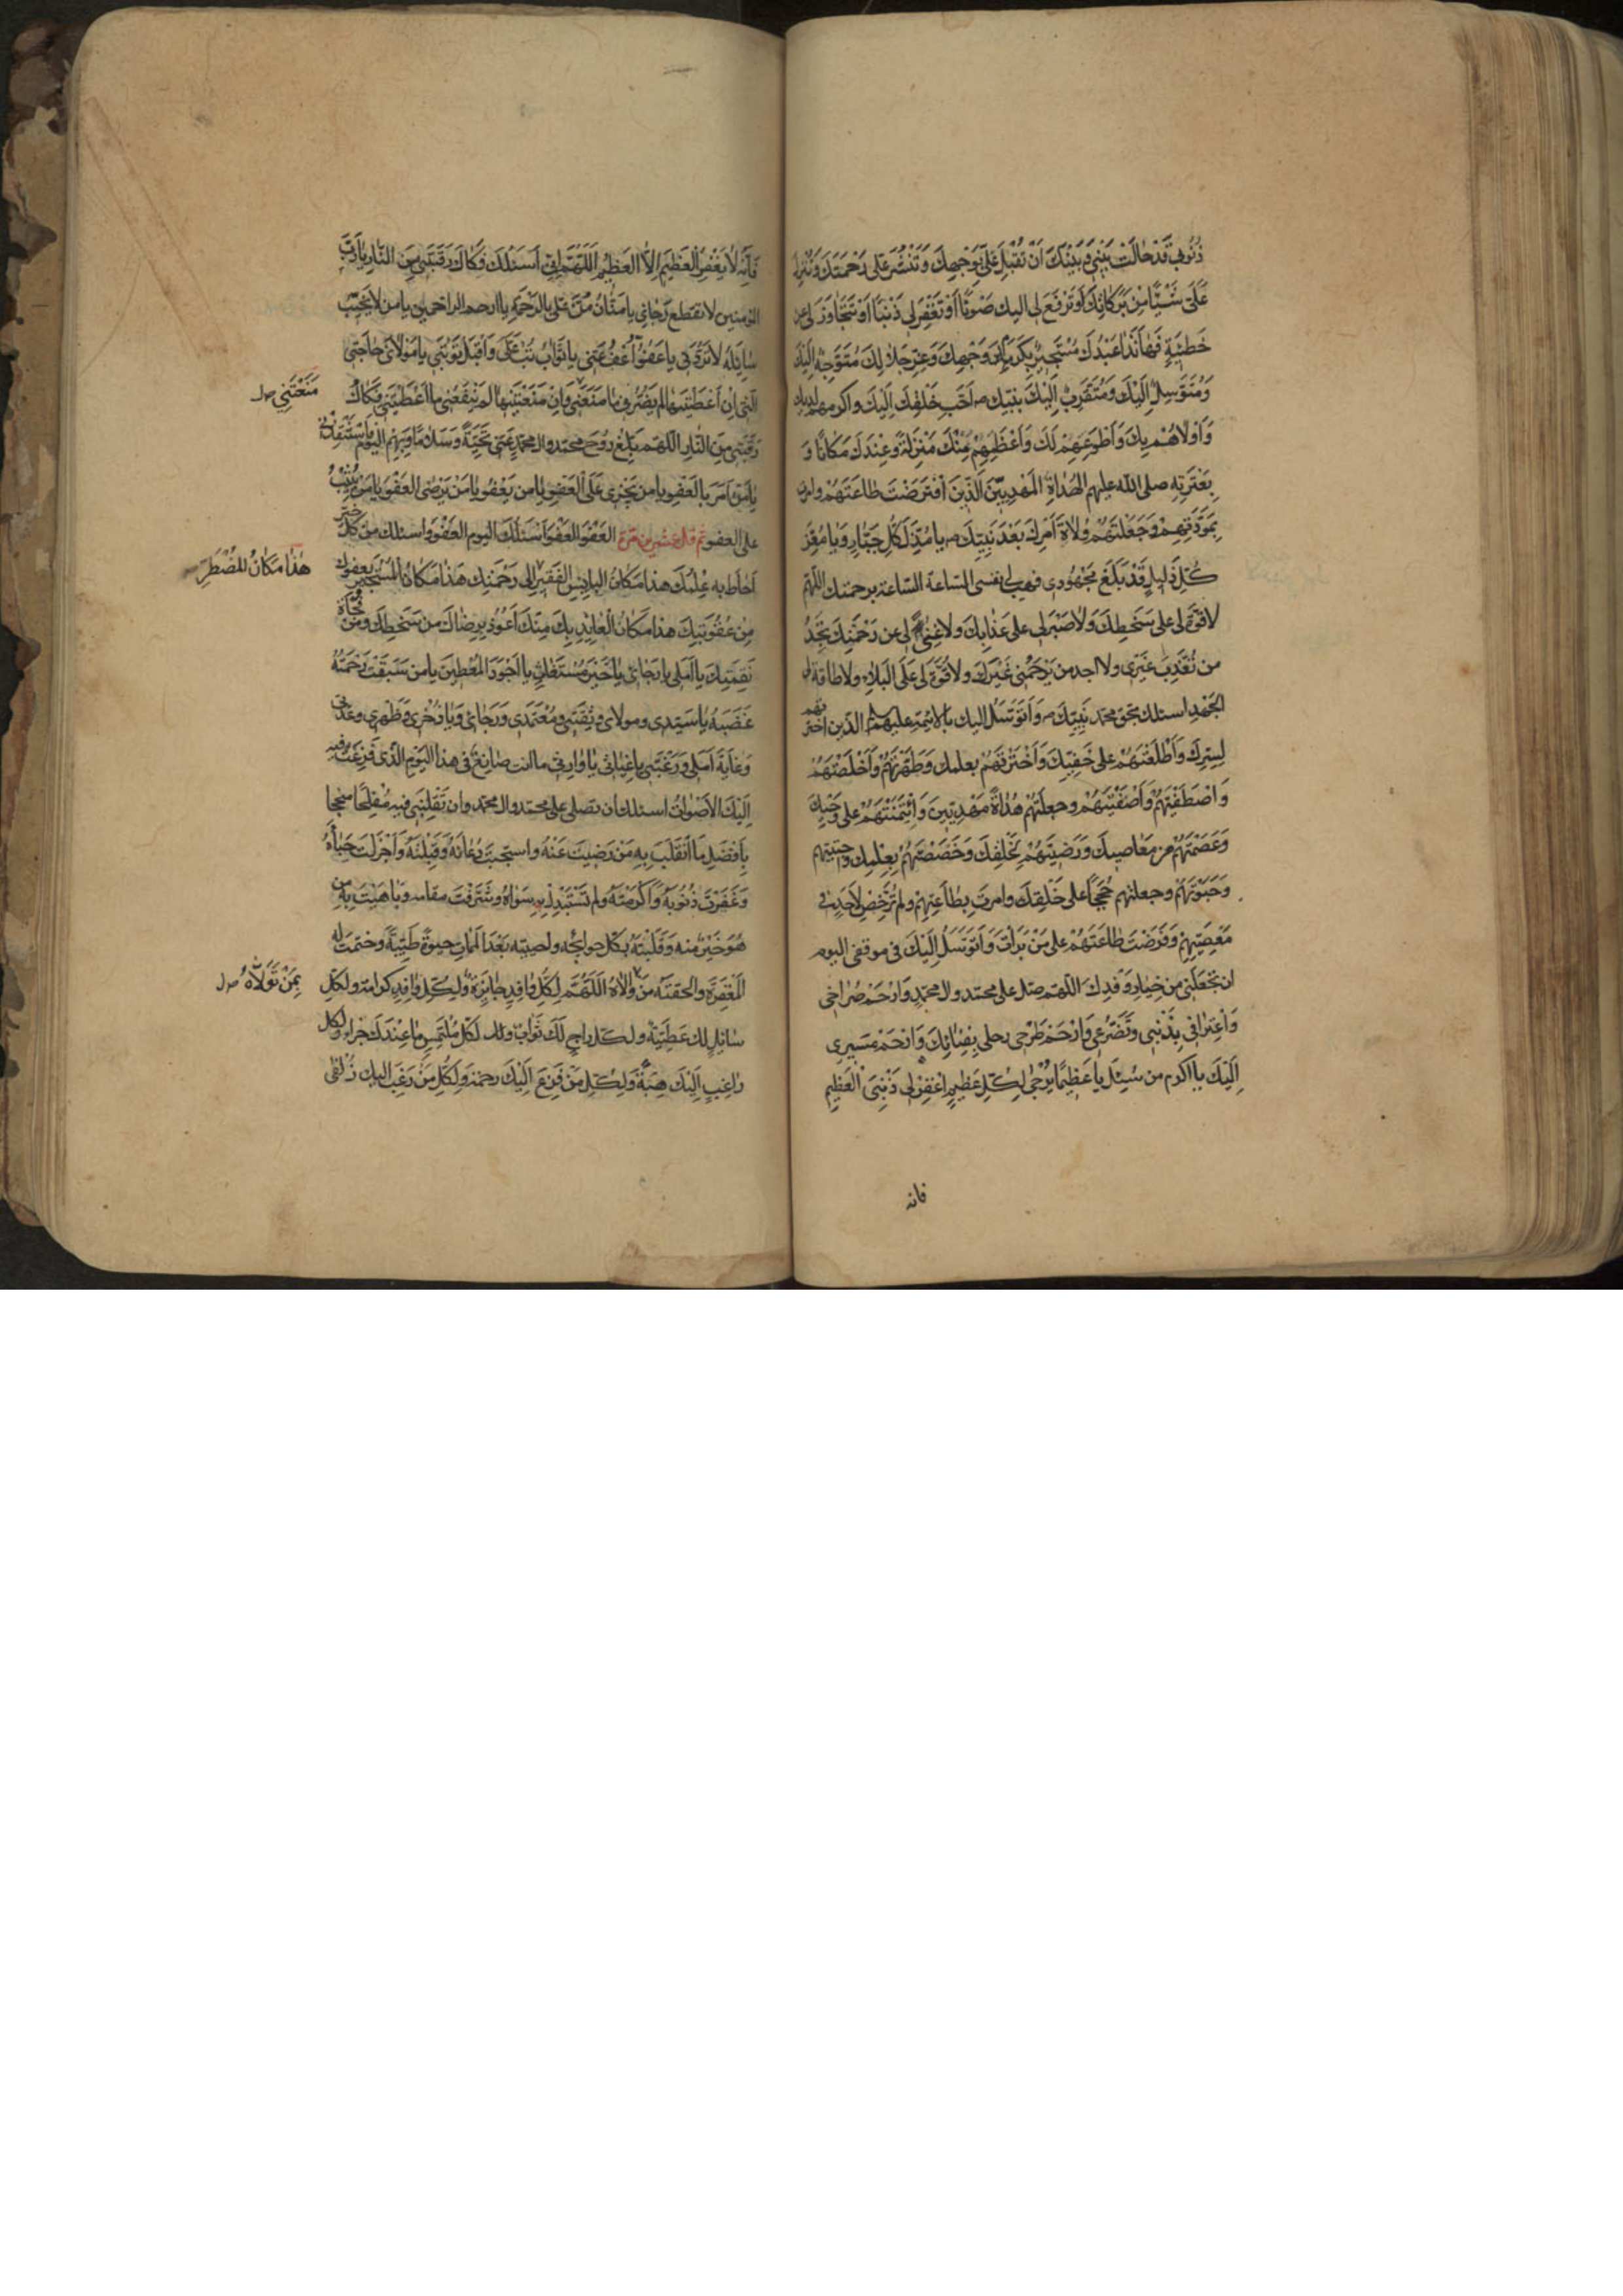 ذُنُوبِي قَدْ حَالَتْ بَيْنِي وَبَيْنَكَ اَنْ تُقْبِلَ عَلَيَّ بِوَجْهِكَ وَتَنْشُرَ عَلَيَّ رَحْمَتَكَ وَتُنْزِلَ
عَلَيَّ شَيْئًا مِنْ بَرَكَاتِكَ اَوْ تَرْفَعَ لِي اليك صَوْتًا اَوْ تَغْفِرَ لِي ذَنْبًا اَوْ تَتَجَاوَزَ لِي عن
خَطِيئَةٍ فَهَا اَنَا ذَا عَبْدُكَ مُسْتَجِيرٌ بِكَرَمِ وَجْهِكَ وَعِزِّ جَلَالِكَ مُتَوَجِّهٌ اِلَيْكَ
وَمُتَوَسِّلٌ اِلَيْكَ وَمُتَقَرِّبٌ اِلَيْكَ بنبيّك ص اَحَبِّ خَلْقِكَ اِلَيْكَ واكرمهم لديك
وَاَوْلَاهُمْ بِكَ وَاَطْوَعِهِمْ لَكَ وَاَعْظَمِهِمْ مِنْكَ مَنْزِلَةً وَعِنْدَكَ مَكَانًا وَ
بِعِتْرَتِهِ صلى الله عليهم الْهُدَاةِ الْمَهْدِيِّينَ الَّذِينَ افْتَرَضْتَ طَاعَتَهُمْ وامرت
بِمَوَدَّتِهِمْ وَجَعَلْتَهُمْ وُلَاةَ اَمْرِكَ بَعْدَ نَبِيِّكَ ص يا مُذِلَّ كُلِّ جَبَّارٍ وَيَا مُعِزَّ
كُلِّ ذَلِيلٍ قَدْ بَلَغَ مَجْهُودِي فهب لي نفسي الساعة الساعة برحمتك اللهم
لَا قُوَّةَ لِي عَلَى سَخَطِكَ وَلَا صَبْرَ لِي عَلَى عَذَابِكَ وَلَا غِنًى لِي عَنْ رَحْمَتِكَ تَجِدُ
من تُعَذِّبُ غَيْرِي ولا اجد من يَرْحَمُنِي غَيْرَكَ وَلَا قُوَّةَ لِي عَلَى الْبَلَاءِ ولا طاقة لي
الْجَهْدِ اسئلك بحق محمد نَبِيِّكَ ص وَاَتَوَسَّلُ اليك بالائمة عليهم السلم الَّذِينَ اخترتهم
لِسِرِّكَ وَاَطْلَعْتَهُمْ عَلَى خَفِيِّكَ وَاَخْتَرْتَهُمْ بعلمك وَطَهَّرْتَهُمْ وَاَخْلَصْتَهُمْ
وَاصْطَفَيْتَهُمْ وَاَصْفَيْتَهُمْ وجعلتهم هُدَاةً مَهْدِيِّينَ وَائْتَمَنْتَهُمْ على وَحْيِكَ
وَعَصَمْتَهُمْ عن مَعَاصِيكَ وَرَضِيتَهُمْ لِخَلْقِكَ وَخَصَصْتَهُمْ بِعِلْمِكَ واجتبيتهم
وَحَبَوْتَهُمْ وجعلتهم حُجَجًا على خَلْقِكَ وامرت بِطَاعَتِهِمْ ولم تُرَخِّصْ لِاَحَدٍ في
مَعْصِيَتِهِمْ وَفَرَضْتَ طَاعَتَهُمْ على مَنْ بَرَأْتَ وَاَتَوَسَّلُ اِلَيْكَ في موقفي اليوم
ان تَجْعَلَنِي من خِيَارِ وَفْدِكَ اللهم صَلِّ على محمد وال محمد وَارْحَمْ صُرَاخِي
وَاعْتِرَافِي بِذَنْبِي وَتَضَرُّعِي وَارْحَمْ طَرْحِي رحلي بِفِنَائِكَ وَارْحَمْ مَسِيرِي
اِلَيْكَ يا اكرم من سُئِلَ يَا عَظِيمًا يُرْجَى لِكُلِّ عَظِيمٍ اغْفِرْ لِي ذَنْبِيَ الْعَظِيمَ
فانه
فَاِنَّهُ لَا يَغْفِرُ الْعَظِيمَ اِلَّا الْعَظِيمُ اَللّٰهُمَّ اِنِّي اَسْئَلُكَ فَكَاكَ رَقَبَتِي مِنَ النَّارِ يَا رَبَّ
المؤمنين لا تقطع رَجَائِي يا مَنَّانُ مُنَّ عَلَيَّ بالرَّحْمَةِ يا ارحم الراحمين يا من لا يُخَيِّبُ
سَائِلَهُ لَا تَرُدَّنِي يا عَفُوُّ اعْفُ عَنِّي يا تَوَّابُ تُبْ عَلَيَّ وَاقْبَلْ تَوْبَتِي يا مَوْلَايَ حَاجَتِي
الَّتِي اِنْ اَعْطَيْتَنِيهَا لَمْ يَضُرَّنِي مَا مَنَعْتَنِي وَاِنْ مَنَعْتَنِيهَا لَمْ يَنْفَعْنِي مَا اَعْطَيْتَنِي فَكَاكَ
مَنَعْتَنِي صل
رَقَبَتِي مِنَ النَّارِ اللهم بَلِّغْ رُوحَ محمد وال محمد عَنِّي تَحِيَّةً وَسَلَامًا وَبِهِمِ الْيَوْمَ فَاسْتَنْقِذْنِي
يَا مَنْ اَمَرَ بِالْعَفْوِ يا من يَجْزِي عَلَى الْعَفْوِ يا من يَعْفُو يا مَنْ يَرْضَى الْعَفْوَ يا مَنْ يُثِيبُ
على العفو ثم قل عشرين مرة الْعَفْوَ الْعَفْوَ اَسْئَلُكَ اليوم الْعَفْوَ وَاسئلك من كُلِّ خَيْرٍ
اَحَاطَ بِهِ عِلْمُكَ هذا مَكَانُ الْبَائِسِ الْفَقِيرِ اِلَى رَحْمَتِكَ هَذَا مَكَانُ الْمُسْتَجِيرِ بعفوك
هٰذَا مَكَانُ الْمُضْطَرِّ
مِنْ عُقُوبَتِكَ هذا مَكَانُ الْعَائِذِ بِكَ مِنْكَ اَعُوذُ بِرِضَاكَ مِنْ سَخَطِكَ وَمِنْ فُجَاةِ
نَقِمَتِكَ يا اَمَلِي يا رَجَائِي يا خَيْرَ مُسْتَغَاثٍ يا اَجْوَدَ الْمُعْطِينَ يا من سَبَقَتْ رَحْمَتُهُ
غَضَبَهُ يا سَيِّدِي ومولاي وَثِقَتِي وَمُعْتَمَدِي وَرَجَائِي وَيَا ذُخْرِي وَظَهْرِي وعُدَّتِي
وَغَايَةَ اَمَلِي وَرَغْبَتِي يا غِيَاثِي يا وَارِثِي ما انت صَانِعٌ فِي هذا الْيَوْمِ الَّذِي فَزِعَتْ فيه
اِلَيْكَ الْاَصْوَاتُ اسئلك ان تصلي على محمد وال محمد وان تَقْلِبَنِي فيه مُفْلِحًا منجحا
بِاَفْضَلِ مَا انْقَلَبَ بِهِ مَنْ رَضِيتَ عَنْهُ واستجبت دُعَاءَهُ وَقَبِلْتَهُ وَاَجْزَلْتَ حِبَاءَهُ
وَغَفَرْتَ ذُنُوبَهُ وَاَكْرَمْتَهُ ولم تَسْتَبْدِلْ بِهِ سِوَاهُ وشَرَّفْتَ مقامه وَبَاهَيْتَ بِهِ من
هُوَ خَيْرٌ منه وَقَلَبْتَهُ بكل حوائجه واحييته بَعْدَ الْمَمَاتِ حَيٰوةً طَيِّبَةً وختمت له
الْمَغْفِرَةِ والحقته مَنْ وَالَاهُ اَللّٰهُمَّ لِكُلِّ وَافِدٍ جَائِزَةٌ وَلِكُلِّ وَافِدٍ كرامة ولكل
بِمَنْ تَوَلَّاهُ صل
سَائِلٍ لك عَطِيَّةٌ ولكل راجٍ لَكَ ثَوَابٌ ولكل مُلْتَمِسٍ مَا عِنْدَكَ جزاء ولكل
رَاغِبٍ اِلَيْكَ هِبَةٌ وَلِكُلِّ مَنْ فَزِعَ اِلَيْكَ رحمة وَلِكُلِّ مَنْ رَغِبَ اليك زُلْفَى